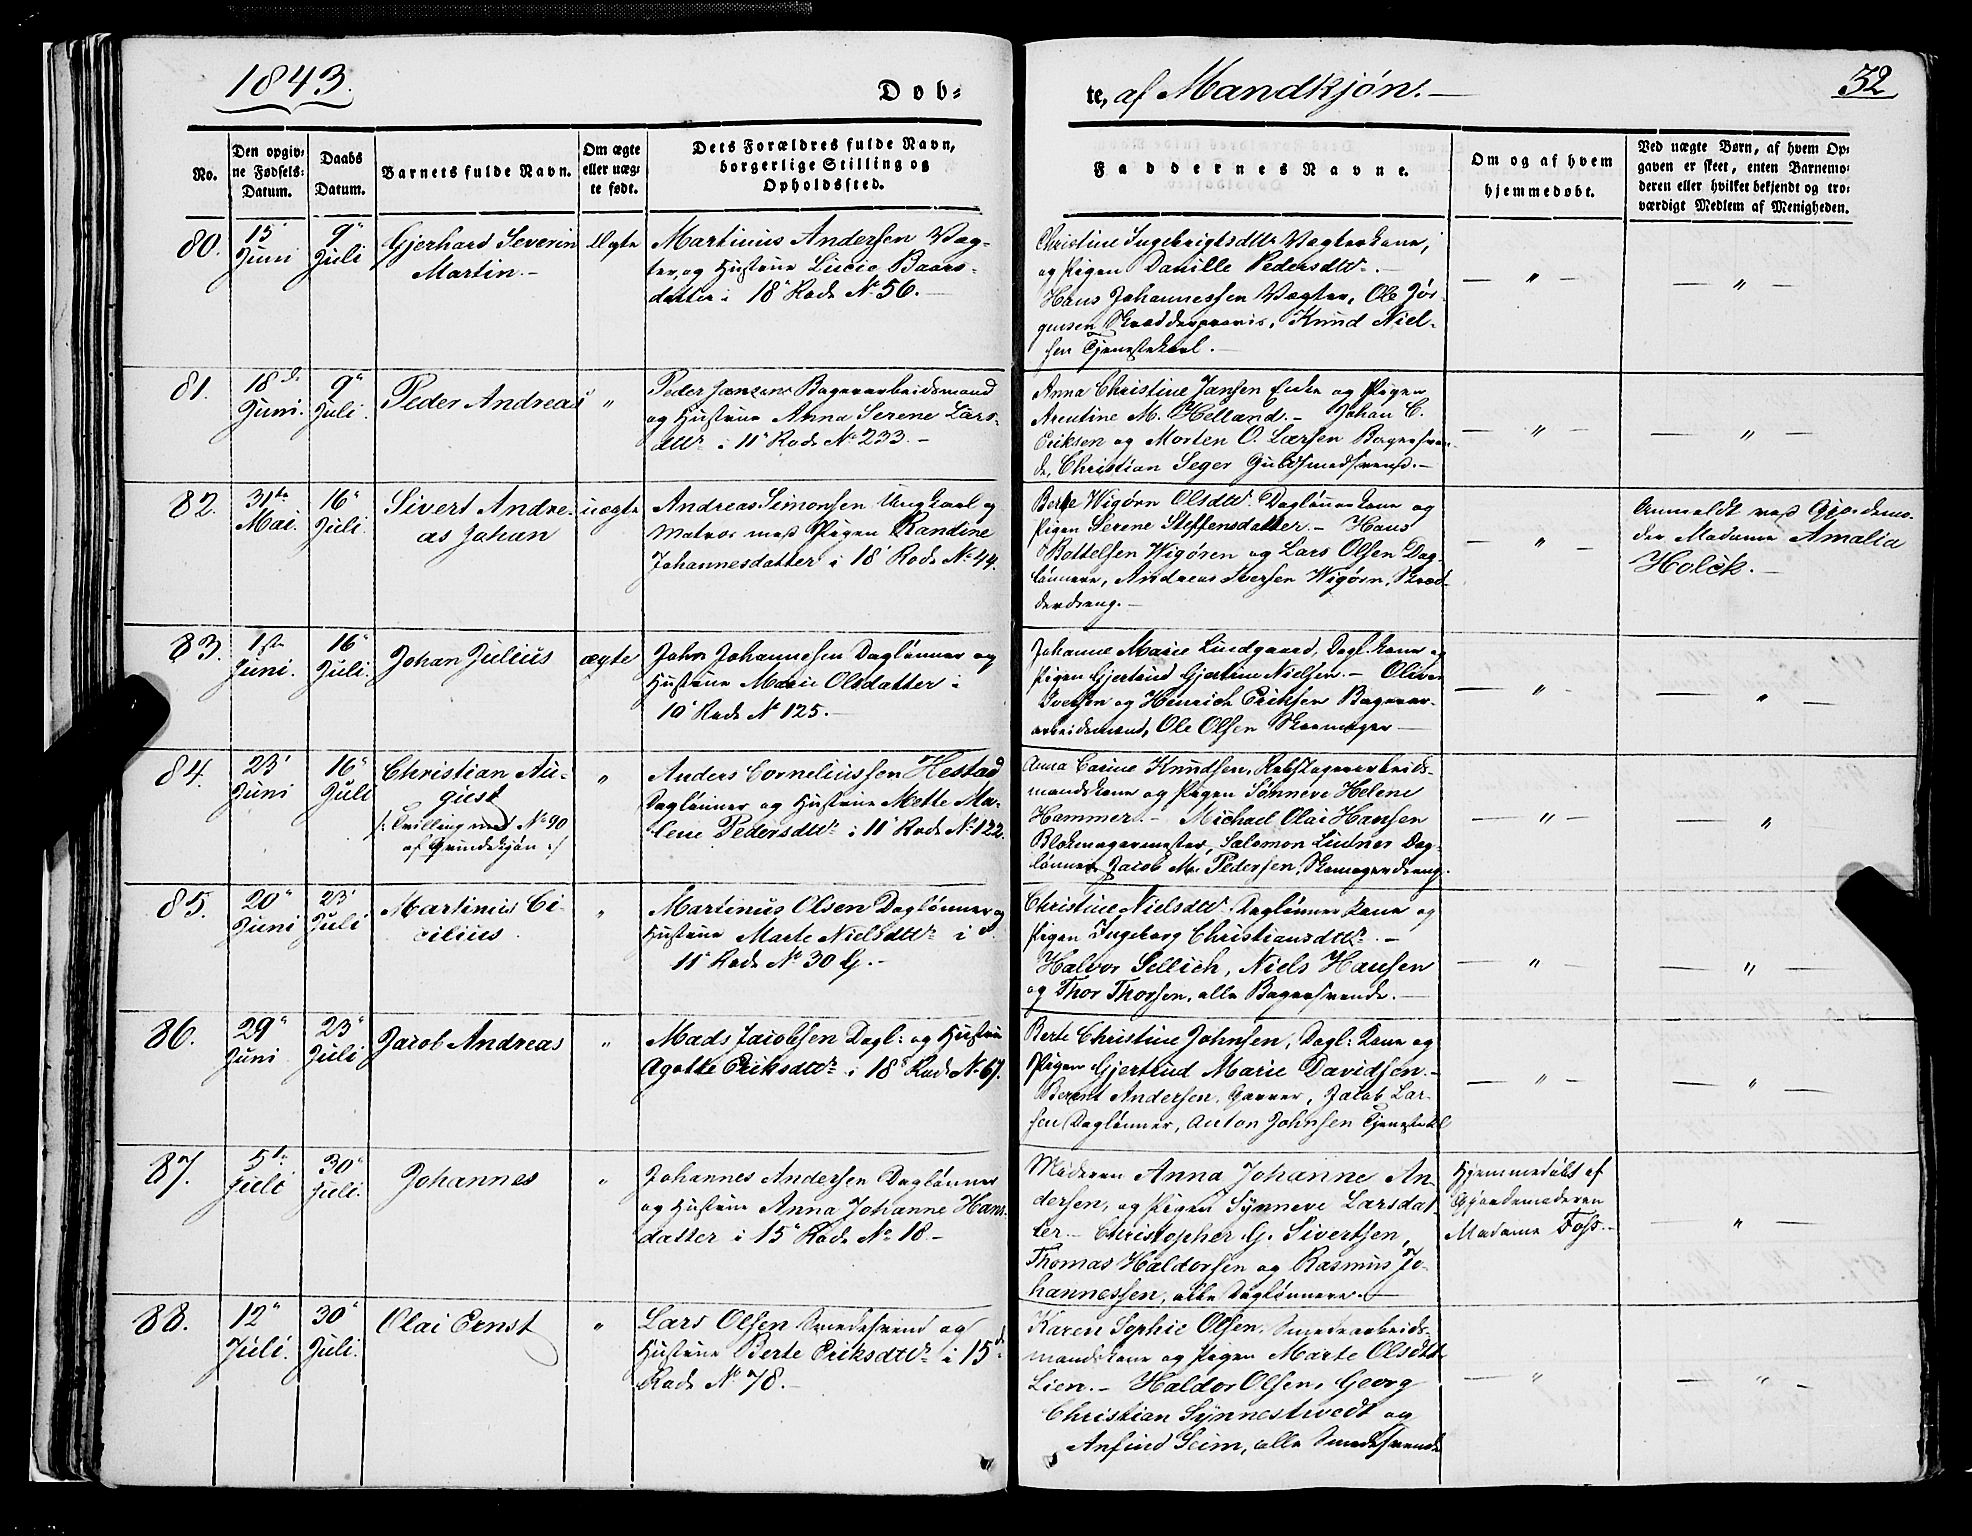 1843.
Döb-
te, af Mandkjøn. —
32
No.
Den opgiv-
ne Fødsels-
Datum.
Daabs
Datum.
Barnets fulde Navn.
Om ægte
eller uæg-
te født.
Dets Forældres fulde Navn,
borgerlige Stilling og
Opholdssted.
Faddernes Navne.
Om og af hvem
hjemmedøbt.
Ved uægte Børn, af hvem Op-
gaven er skeet, enten Barnemo-
deren eller hvilket bekjendt og tro-
værdigt Medlem af Menigheden.
80.
15
Juni
9
Juli
Gjerhard Severin
Martin. —
Ægte
Martinus Andersen Væg-
ter, og Hustrue Lucie Baars-
datter i 18 Rode No 56. —
Christine Ingebrigtsdttr Vægterkone,
og Pigen Danille Pedersdttr. —
Hans Johannessen Vægter, Ole Jør-
gensen Skrædder, Knud Niel-
sen Tjenestekarl. —
— " —
— " —
81.
18
Juni.
9
Juli.
Peder Andreas
"
Peder Jansen Bagerarbeidsmand
og Hustrue Anna Serene Lars-
dttr i 11 Rode No 233. —
Anna Christine Jansen Enke og Pigen
Arentine M. Helland. — Johan C.
Eriksen og Morten O. Larsen Bagersven-
de, Christian Seger Guldsmedsvend. —
— " —
— " —
82.
31te
Mai.
16
Juli.
Sivert Andre-
as Johan
uægte
Andreas Simonsen Ungkarl og
Matros med Pigen Randine
Johannesdatter i 18 Rode No 44.
Berte Wigørn Olsdttr Daglønnerkone og
Pigen Serene Steffensdatter. — Hans
Bottelsen Wigøren og Lars Olsen Dag-
lønnere, Andreas Iversen Wigørn, Skræd-
derdreng. —
— " —
Anmeldt ved Gjordemo-
der Madame Amalia
Holck. —
83.
1ste
Juni.
16
Juli.
Johan Julius
ægte
John Johannesen Daglønner og
Hustrue Marie Olsdatter i
10 Rode No 125. —
Johanne Marie Lindgaard, Dagl. kone og
Pigen Gjertrud Gjertine Nielsen. — Oliver
Iversen og Hinrich Eriksen Bager-
arbeidsmænd, Ole Olsen Skomager —
— " —
— " —
84.
23
Juni
16
Juli
Christian Au-
gust
/: Tvilling med No 90
af Qvindekjøn :/
"
Anders Corneliussen Hestad
Daglønner og Hustrue Mette Ma-
lene Pedersdttr i 11 Rode No 122.
Anna Carine Knudsen, Rebslagerarbeids-
mandskone og Pigen Sønneve Helene
Hammer. — Michael Olai Hansen
Blokmagermester, Salomon Lindner Dag-
lønner, Jacob M. Pedersen, Skomagerdreng.
— " —
— " —
85.
20
Juni
23
Juli
Martinus Ci-
cilius.
"
Martinus Olsen Daglønner og
Hustrue Marte Nielsdttr i
11 Rode No 30 G. —
Christine Nielsdttr Daglønnerkone og
Pigen Ingeborg Christiansdttr. —
Halvor Sellich, Niels Hansen
og Thor Thorsen, alle Bagersvende. —
— " —
— " —
86.
29
Juni
23
Juli
Jacob Andreas
"
Mads Jacobsen Dagl: og Hustrue
Agathe Eriksdttr i 18 Rode No 67.
Berte Christine Johnsen, Dagl: kone og
Pigen Gjertrud Marie Davidsen. —
Berent Andersen, Garver, Jacob Lar-
sen Daglønner, Anton Johnsen Tjenestekl
— " —
— " —
87.
5te
Juli
30
Juli.
Johannes
"
Johannes Andersen Daglønner
og Hustrue Anna Johanne Hans-
datter i 15 Rode No 18 —
Moderen Anna Johanne An-
dersen, og Pigen Synneve Larsdat-
ter — Christopher G. Sivertsen,
Thomas Haldorsen og Rasmus Jo-
hannessen, alle Daglønnere. —
Hjemmedøbt af
Gjordemoderen
Madame Foss. —
— " —
88.
12
Juli.
30
Juli.
Olai Ernst
"
Lars Olsen Smedesvend og
Hustrue Berte Eriksdttr i 15de
Rode No 78. —
Karen Sophie Olsen, Smedearbeids-
mandskone og Pigen Marte Olsdttr
Lien. — Haldor Olsen, Georg
Christian Synnestvedt og
Anfind Seim, alle Smedesvende
— " —
— " —